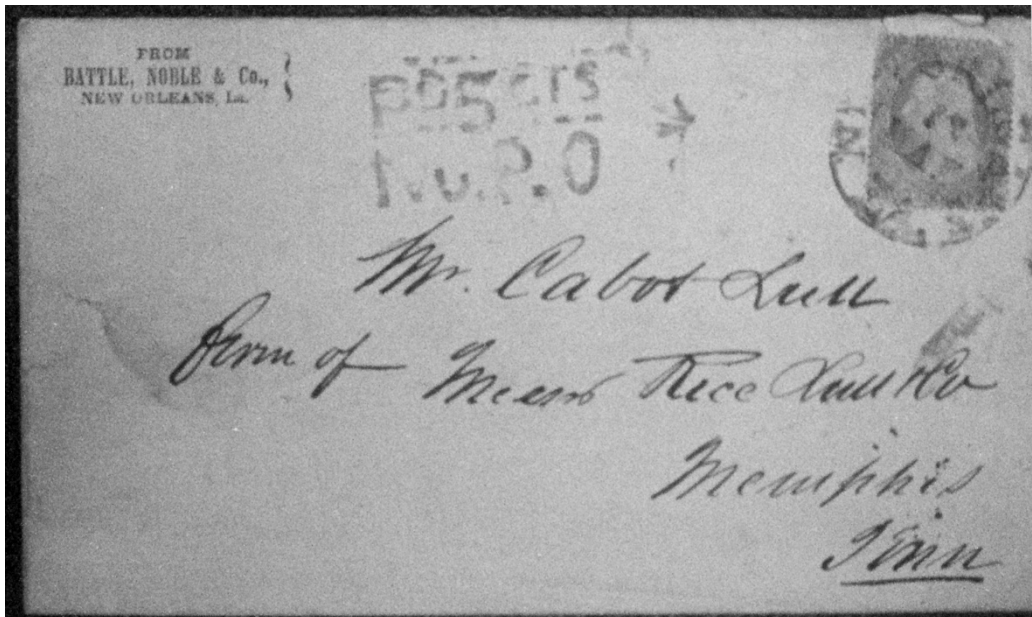 FROM
BATTLE, NOBLE & Co.,
NEW ORLEANS, La.
N.O.P.O
Mr. Cabot Lull
Firm of Messrs Rice Lull & Co
Memphis
Tenn